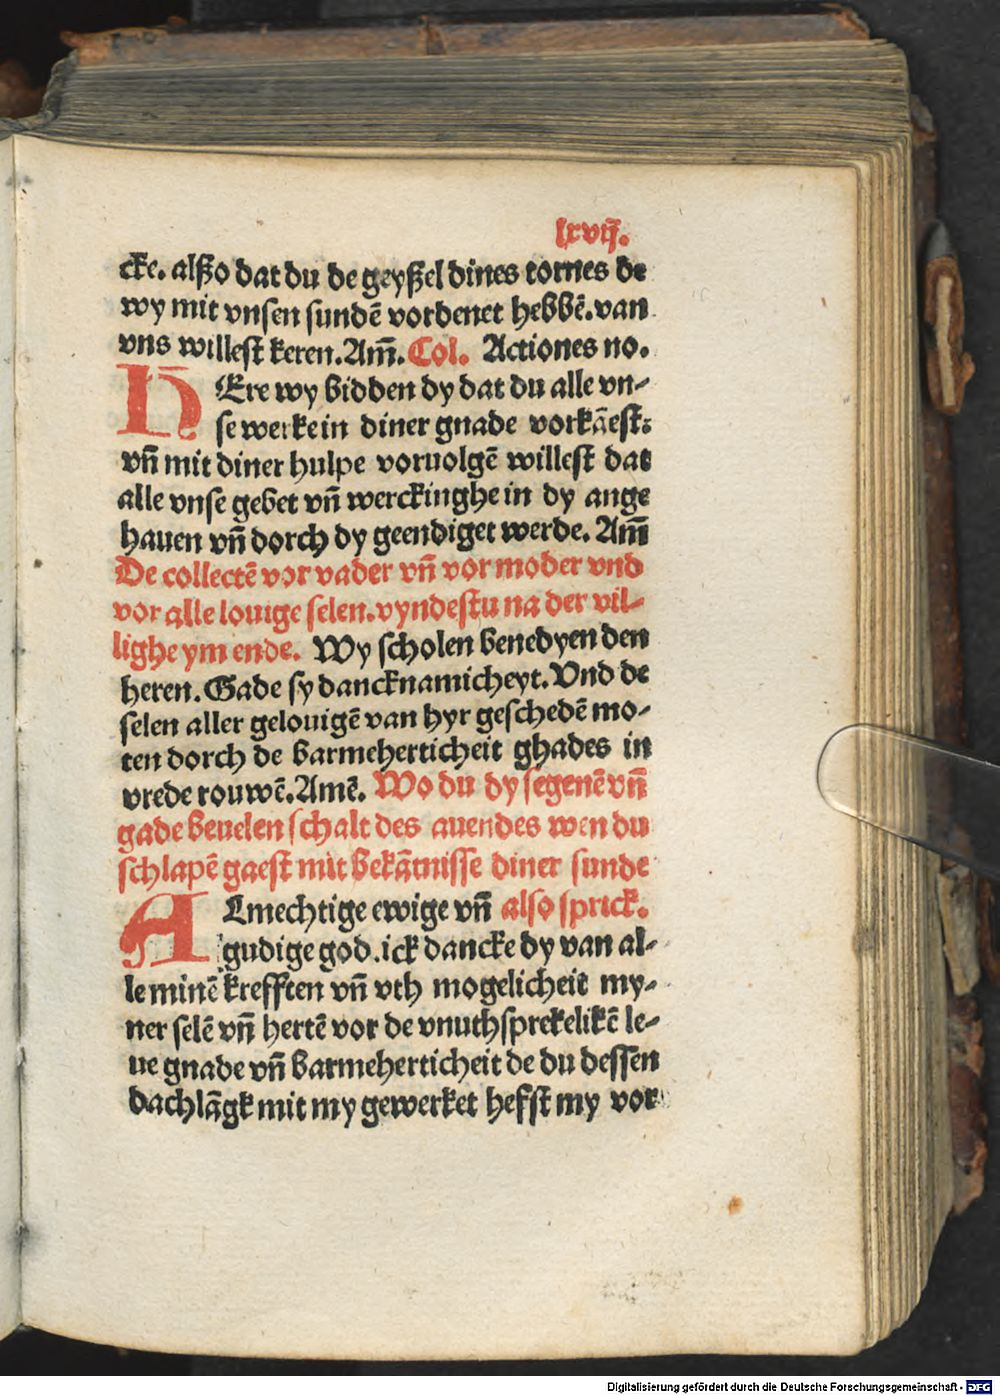 lxvij.
cke. alßo dat du de geyßel dines tornes de
wy mit vnsen sundē vordenet hebbē. van
vns willest keren. Am̄. Col. Actiones no.
HEre wy bidden dy dat du alle vn-
se werke in diner gnade vorkāest:
vn̄ mit diner hulpe voruolgē willest dat
alle vnse gebet vn̄ werckinghe in dy ange
hauen vn̄ dorch dy geendiget werde. Am̄
De collectē vor vader vn̄ vor moder vnd
vor alle louige selen. vyndestu na der vil-
lighe ym ende. Wy scholen benedyen den
heren. Gade sy dancknamicheyt. Vnd de
selen aller gelouigē van hyr geschedē mo-
ten dorch de barmeherticheit ghades in
vrede rouwē. Amē. Wo du dy segenē vn̄
gade beuelen schalt des auendes wen du
schlapē gaest mit bekātnisse diner sunde
ALmechtige ewige vn̄ also sprick.
gudige god. ick dancke dy van al-
le minē krefften vn̄ vth mogelicheit my-
ner selē vn̄ hertē vor de vnuthsprekelikē le-
ue gnade vn̄ barmeherticheit de du dessen
dachlāgk mit my gewerket hefst my vor
Digitalisierung gefördert durch die Deutsche Forschungsgemeinschaft - DFG